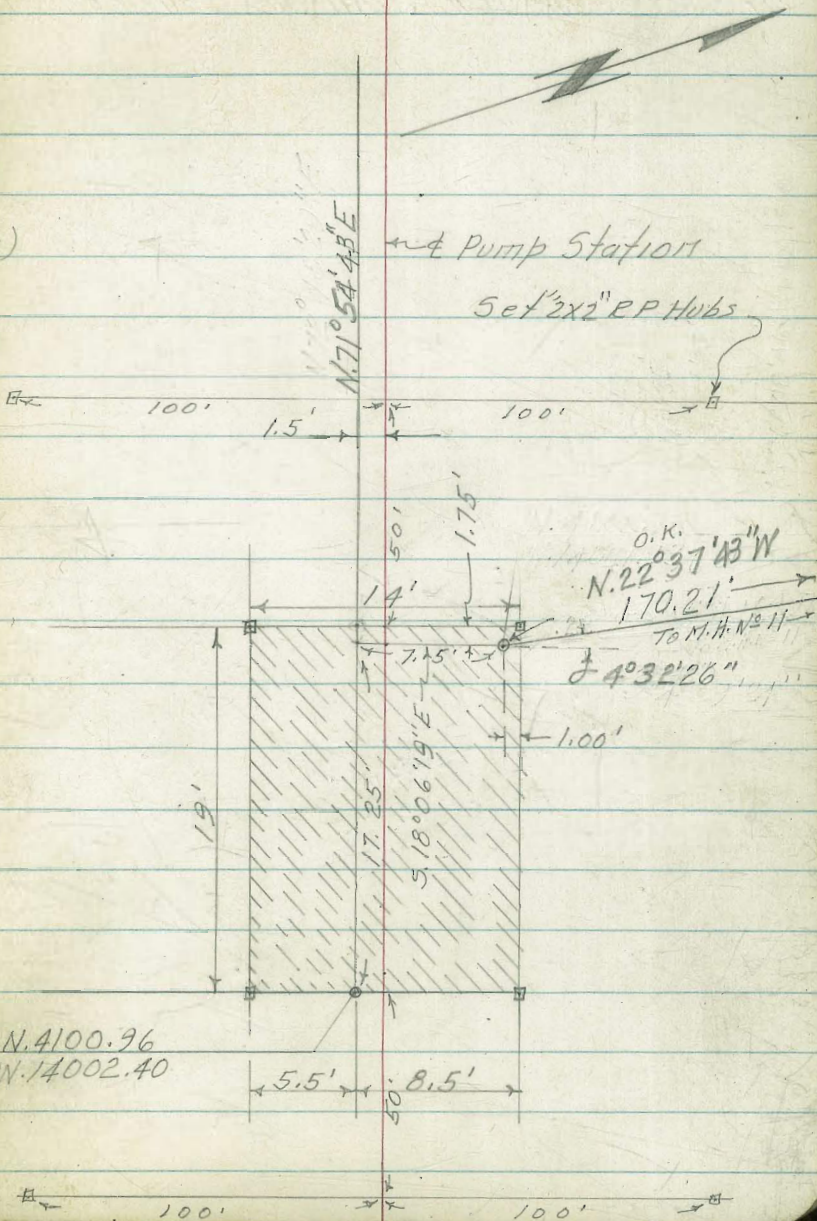 )
N.71°54'43"E
℄ Pump Station
Set 2"x2" R P Hubs
100'
100'
1.5'
50'
1.75'
O.K.
N.22°37'43"W
170.21'
To M.H. No 11
14'
7.5'
4°32'26"
1.00'
19'
17.25'
S.18°06'19"E
N.4100.96
W.14002.40
5.5'
8.5'
50'
100'
100'